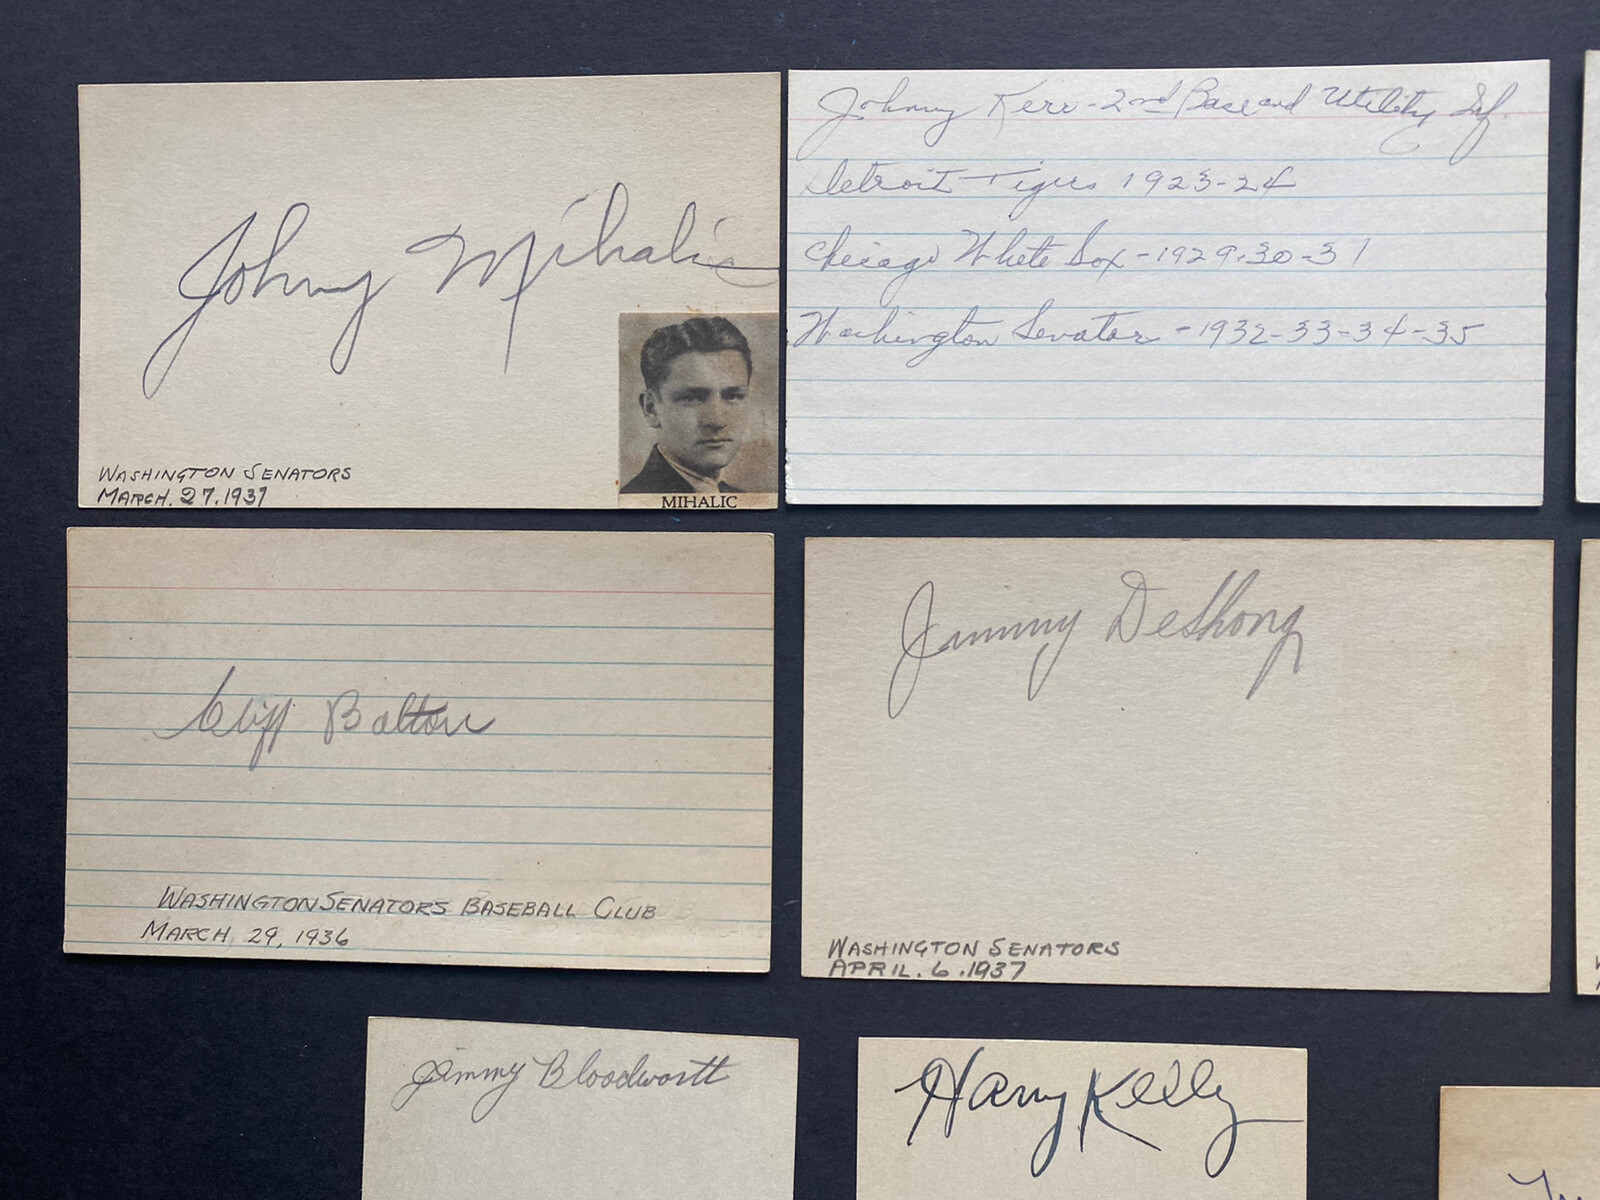 Johnny Mihalic
MIHALIC
WASHINGTON SENATORS
MARCH. 27. 1937
Johnny Kerr - 2nd Base and Utility Inf.
Detroit Tigers 1923-24
Chicago White Sox - 1929-30-31
Washington Senators - 1932-33-34-35
Cliff Bolton
WASHINGTON SENATORS BASEBALL CLUB
MARCH 29, 1936
Jimmy DeShong
WASHINGTON SENATORS
APRIL. 6. 1937
Jimmy Bloodworth
Harry Kelly